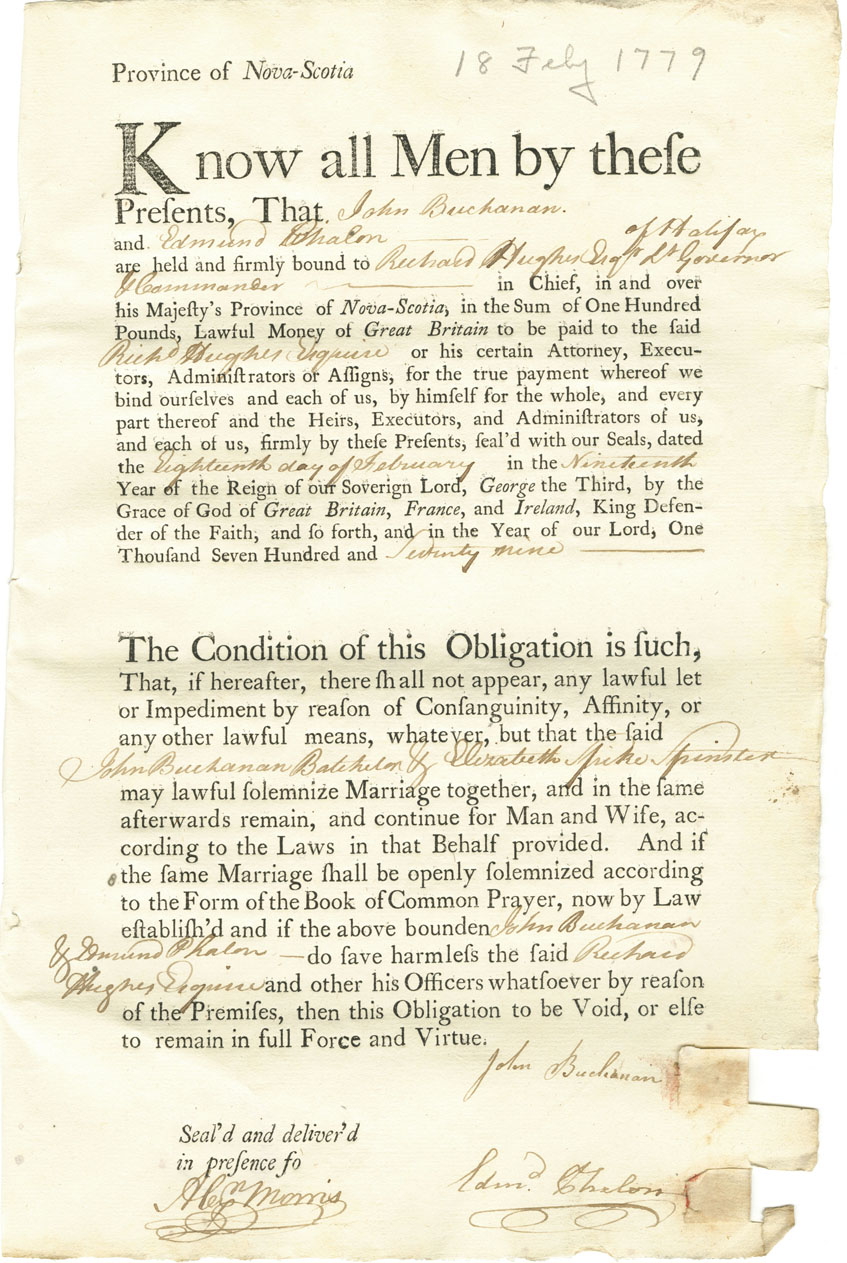 Province of Nova-Scotia
18 Feby 1779
Know all Men by theſe
Preſents, That John Buchanan.
and Edmund Phalon of Halifax
are held and firmly bound to Richard Hughes Esqr. Lt Governor
& Commander in Chief, in and over
his Majeſty's Province of Nova-Scotia, in the Sum of One Hundred
Pounds, Lawful Money of Great Britain to be paid to the ſaid
Richd Hughes Esquire or his certain Attorney, Execu-
tors, Adminiſtrators or Aſſigns, for the true payment whereof we
bind ourſelves and each of us, by himſelf for the whole, and every
part thereof and the Heirs, Executors, and Adminiſtrators of us,
and each of us, firmly by theſe Preſents, ſeal'd with our Seals, dated
the Eighteenth day of February in the Nineteenth
Year of the Reign of our Soverign Lord, George the Third, by the
Grace of God of Great Britain, France, and Ireland, King Defen-
der of the Faith, and ſo forth, and in the Year of our Lord, One
Thouſand Seven Hundred and Seventy nine
The Condition of this Obligation is ſuch,
That, if hereafter, there ſhall not appear, any lawful let
or Impediment by reaſon of Conſanguinity, Affinity, or
any other lawful means, whatever, but that the ſaid
John Buchanan Batchelor & Elizabeth Spike Spinster
may lawful ſolemnize Marriage together, and in the ſame
afterwards remain, and continue for Man and Wife, ac-
cording to the Laws in that Behalf provided. And if
the ſame Marriage ſhall be openly ſolemnized according
to the Form of the Book of Common Prayer, now by Law
eſtabliſh'd and if the above bounden John Buchanan
& Edmund Phalon — do ſave harmleſs the ſaid Richard
Hughes Esquire and other his Officers whatſoever by reaſon
of the Premiſes, then this Obligation to be Void, or elſe
to remain in full Force and Virtue.
John Buchanan
Seal'd and deliver'd
in preſence fo
Alexr Morris
Edmd. Phelon